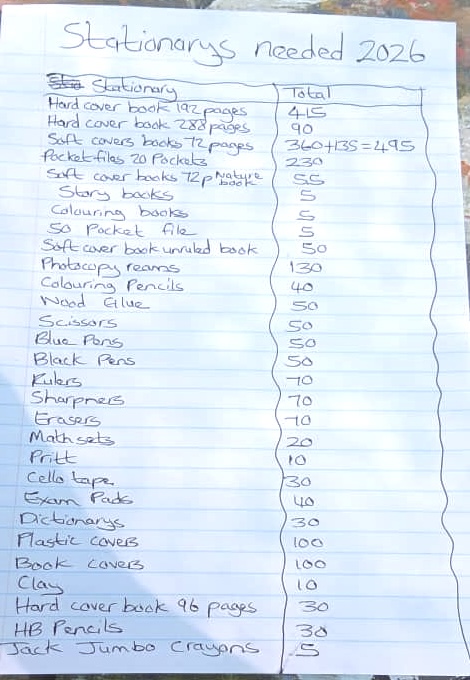 Stationarys needed 2026
Stationary Total
Hard cover book 192 pages 415
Hard cover book 288 pages 90
Soft covers books 72 pages 360+135=495
Pocket files 20 Pockets 230
Soft cover books 72p Nature book 55
Story books 5
Colouring books 5
50 Pocket file 5
Soft cover book unruled book 50
Photocopy reams 130
Colouring Pencils 40
Wood Glue 50
Scissors 50
Blue Pens 50
Black Pens 50
Rulers 70
Sharpners 70
Erasers 70
Math sets 20
Pritt 10
Cello tape 30
Exam Pads 40
Dictionarys 30
Plastic covers 100
Book covers 100
Clay 10
Hard cover book 96 pages 30
HB Pencils 30
Jack Jumbo Crayons 5